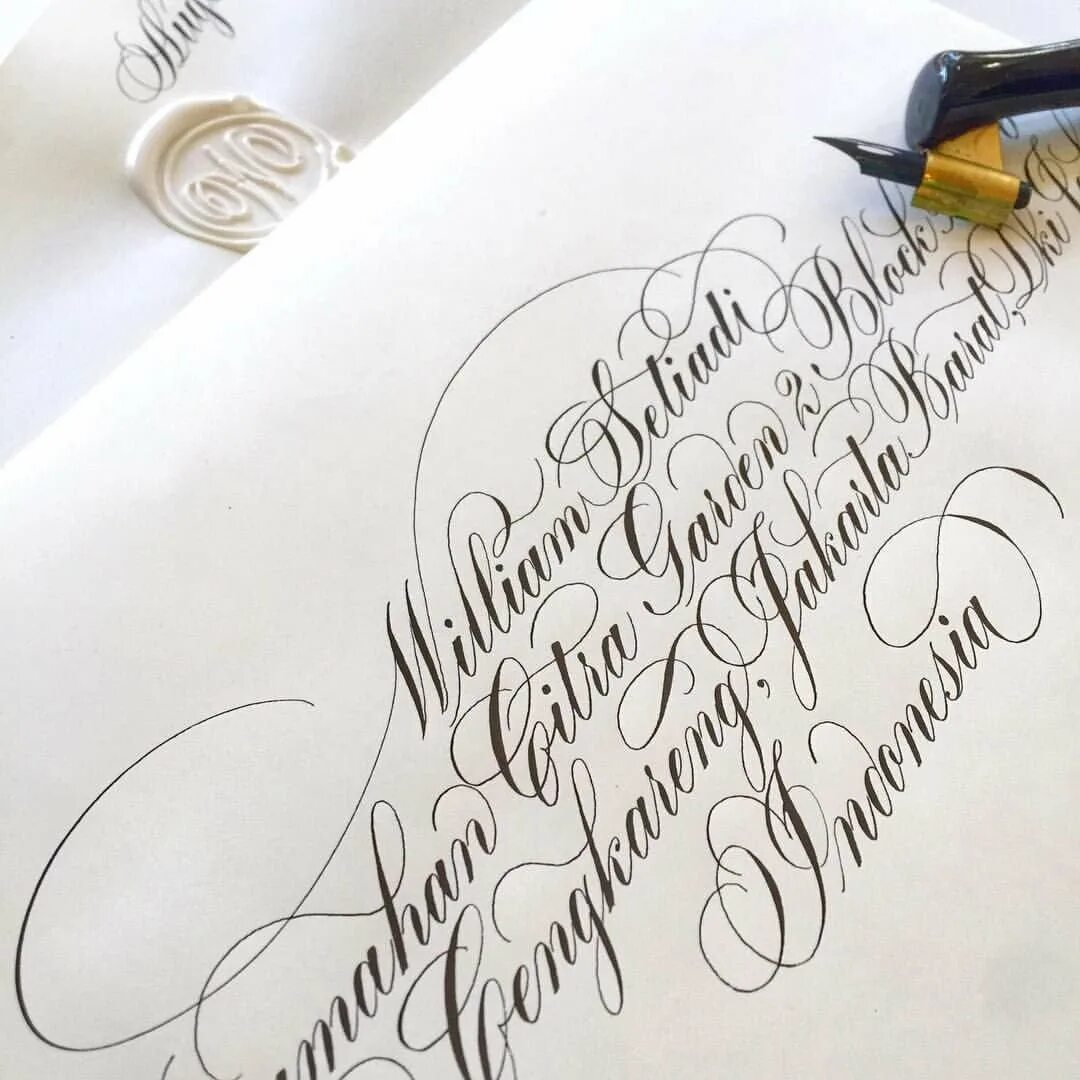 William Setiadi
mahan Citra Garden 2 Block
Cengkareng, Jakarta Barat, Dki
Indonesia